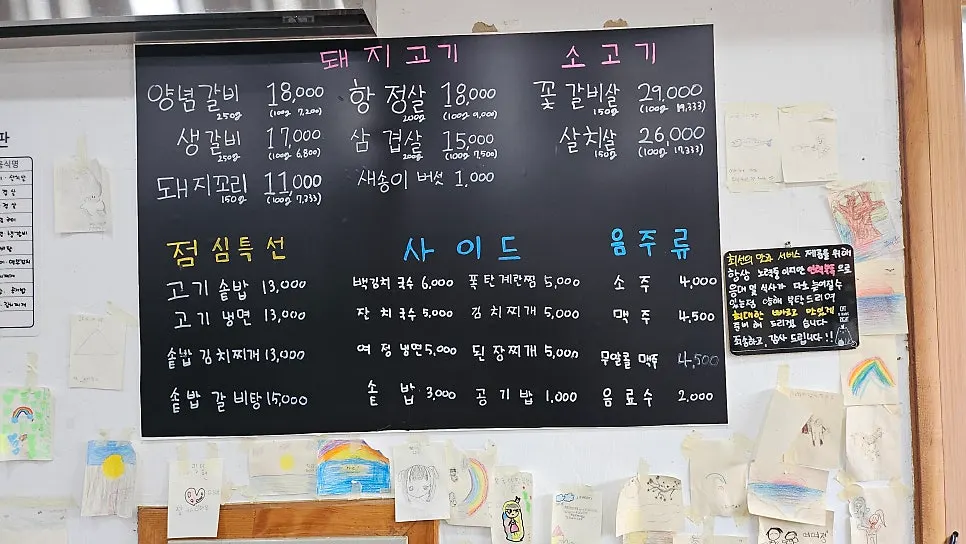 돼지고기
양념갈비 250g 18,000 (100g 7,200)
생갈비 250g 17,000 (100g 6,800)
돼지꼬리 150g 11,000 (100g 7,333)
항정살 200g 18,000 (100g 9,000)
삼겹살 200g 15,000 (100g 7,500)
새송이 버섯 1,000
소고기
꽃갈비살 150g 29,000 (100g 19,333)
살치살 150g 26,000 (100g 17,333)
점심특선
고기솥밥 13,000
고기냉면 13,000
솥밥김치찌개 13,000
솥밥갈비탕 15,000
사이드
백김치국수 6,000 폭탄계란찜 5,000
잔치국수 5,000 김치찌개 5,000
여정냉면 5,000 된장찌개 5,000
솥밥 3,000 공기밥 1,000
음주류
소주 4,000
맥주 4,500
무알콜맥주 4,500
음료수 2,000
최선의 맛과 서비스 제공을 위해
항상 노력중이지만 인력부족으로
응대 및 식사가 다소 늦어질수
있는점 양해 부탁드리며
최대한 빠르고 맛있게
준비해 드리겠습니다
죄송하고, 감사드립니다!!